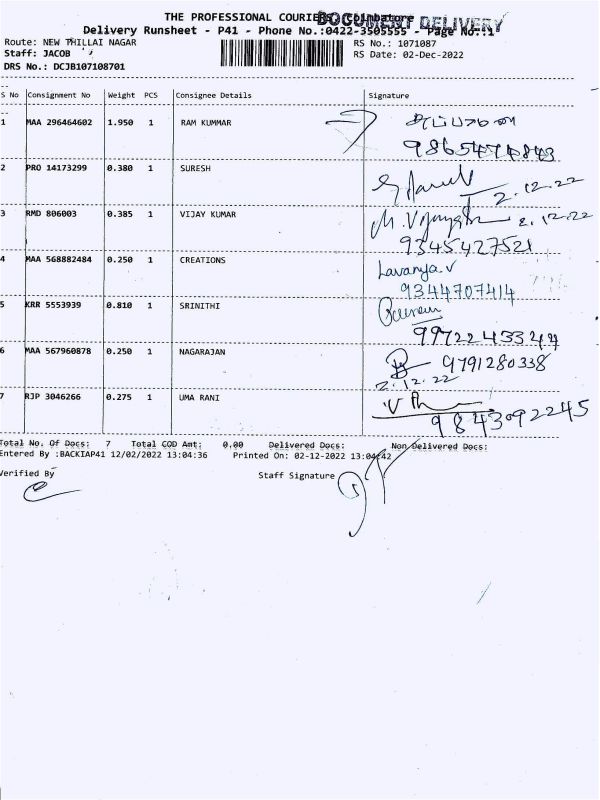 THE PROFESSIONAL COURIERS Coimbatore
DOCUMENT DELIVERY
Delivery Runsheet - P41 - Phone No.:0422-3505555 - Page No.:1
Route: NEW THILLAI NAGAR RS No.: 1071087
Staff: JACOB RS Date: 02-Dec-2022
DRS No.: DCJB107108701
S No Consignment No Weight PCS Consignee Details Signature
1 MAA 296464602 1.950 1 RAM KUMMAR
2 PRO 14173299 0.380 1 SURESH
2.12.22
3 RMD 806003 0.385 1 VIJAY KUMAR 2.12.22
9345427521
4 MAA 568882484 0.250 1 CREATIONS Lavanya.v
9344707414
5 KRR 5553939 0.810 1 SRINITHI
9972243344
6 MAA 567960878 0.250 1 NAGARAJAN 9791280338
2.12.22
7 RJP 3046266 0.275 1 UMA RANI
9843092245
Total No. Of Docs: 7 Total COD Amt: 0.00 Delivered Docs: Non Delivered Docs:
Entered By :BACKIAP41 12/02/2022 13:04:36 Printed On: 02-12-2022 13:04:42
Verified By Staff Signature